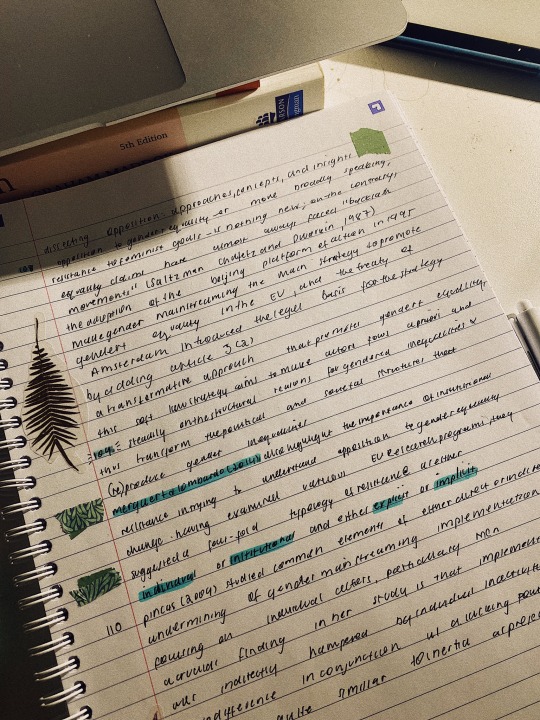 5th Edition
PEARSON
dissecting opposition - approaches, concepts, and insights
opposition to gender equality - or more broadly speaking,
resistance to feminist goals - is nothing new; on the contrary,
equality claims have almost always faced "backlash
movements" (Saltzman Chafetz and Dworkin, 1987)
the adoption of the beijing platform of action in 1995
made gender mainstreaming the main strategy to promote
gender equality in the EU, and the treaty of
Amsterdam introduced the legal basis for the strategy
by adding article 3(2)
a transformative approach that promotes gender equality,
this soft law strategy aims to make actors focus a priori and
steadily on the structural reasons for gendered inequalities &
thus transform the political and societal structures that
(re)produce gender inequalities
mergaert & lombardo (2014) also highlight the importance of institutional
resistance in trying to understand opposition to gender equality
change. having examined various EU Research programs, they
suggested a four-fold typology of resistance as either
individual or institutional and either explicit or implicit
110 pincus (2009) studied common elements of either direct or indirect
undermining of gender mainstreaming implementation
focusing on individual actors, particularly men
a crucial finding in her study is that implementation
was indirectly hampered by individual inactivity
indifference in conjunction w/ a lacking
quite similar to inertia as